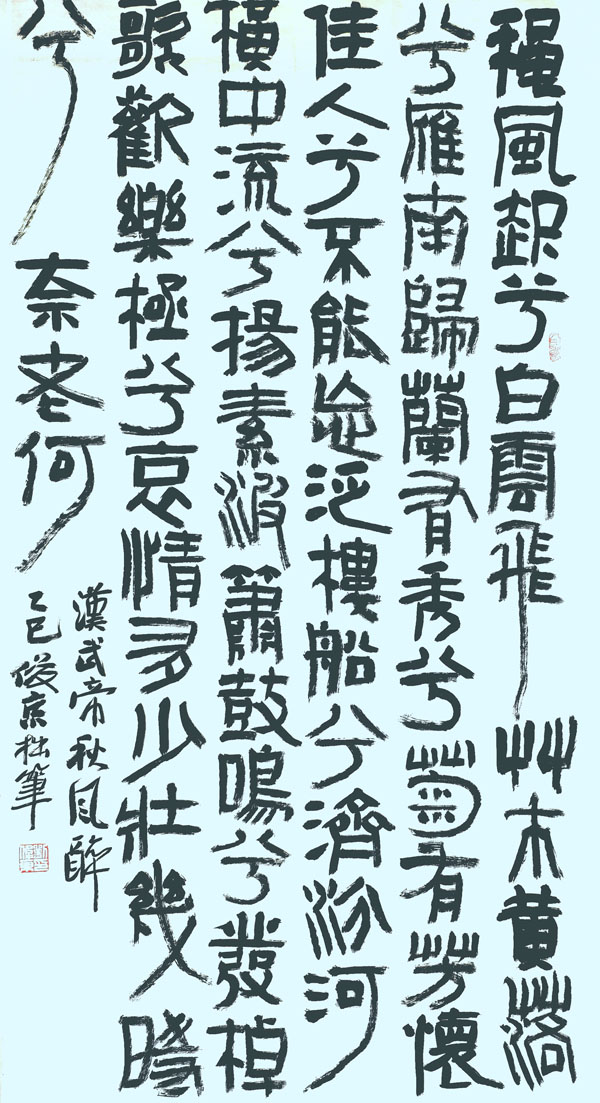 穐風起兮白雲飛艸木黄落
兮雁南歸蘭有秀兮菊有芳懷
佳人兮不能忘泛樓船兮濟汾河
橫中流兮揚素波簫鼓鳴兮發棹
歌歡樂極兮哀情多少壯幾時
兮奈老何
漢武帝秋風辭
乙巳俊京拙筆